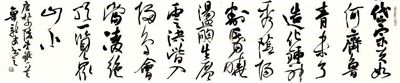 岱宗夫如
何齊魯
青未了
造化鍾神
秀陰陽
割昏曉
盪胸生層
雲決眥入
歸鳥會
當凌絕
頂一覽眾
山小